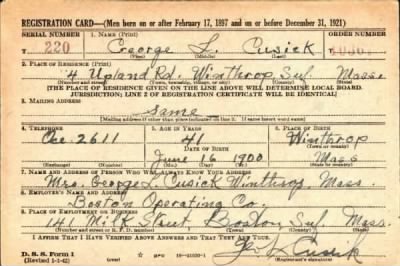 REGISTRATION CARD—(Men born on or after February 17, 1897 and on or before December 31, 1921)
SERIAL NUMBER 1. NAME (Print) ORDER NUMBER
220 George L. Cusick
2. PLACE OF RESIDENCE (Print)
4 Upland Rd. Winthrop Suf. Mass.
(Number and street) (Town, township, village, or city) (County) (State)
[THE PLACE OF RESIDENCE GIVEN ON THE LINE ABOVE WILL DETERMINE LOCAL BOARD
JURISDICTION; LINE 2 OF REGISTRATION CERTIFICATE WILL BE IDENTICAL]
3. MAILING ADDRESS
Same
[Mailing address if other than place indicated on line 2. If same insert word same]
4. TELEPHONE 5. AGE IN YEARS 6. PLACE OF BIRTH
Oce. 2611 41 Winthrop
DATE OF BIRTH (Town or county)
June 16 1900 Mass
(Exchange) (Number) (Mo.) (Day) (Yr.) (State or country)
7. NAME AND ADDRESS OF PERSON WHO WILL ALWAYS KNOW YOUR ADDRESS
Mrs. George L. Cusick Winthrop, Mass.
8. EMPLOYER'S NAME AND ADDRESS
Boston Operating Co.
9. PLACE OF EMPLOYMENT OR BUSINESS
141 Milk Street Boston Suf. Mass.
(Number and street or R. F. D. number) (Town) (County) (State)
I AFFIRM THAT I HAVE VERIFIED ABOVE ANSWERS AND THAT THEY ARE TRUE.
D. S. S. Form 1
(Revised 1-1-42) (over) GPO 16—21630-1
Cusick